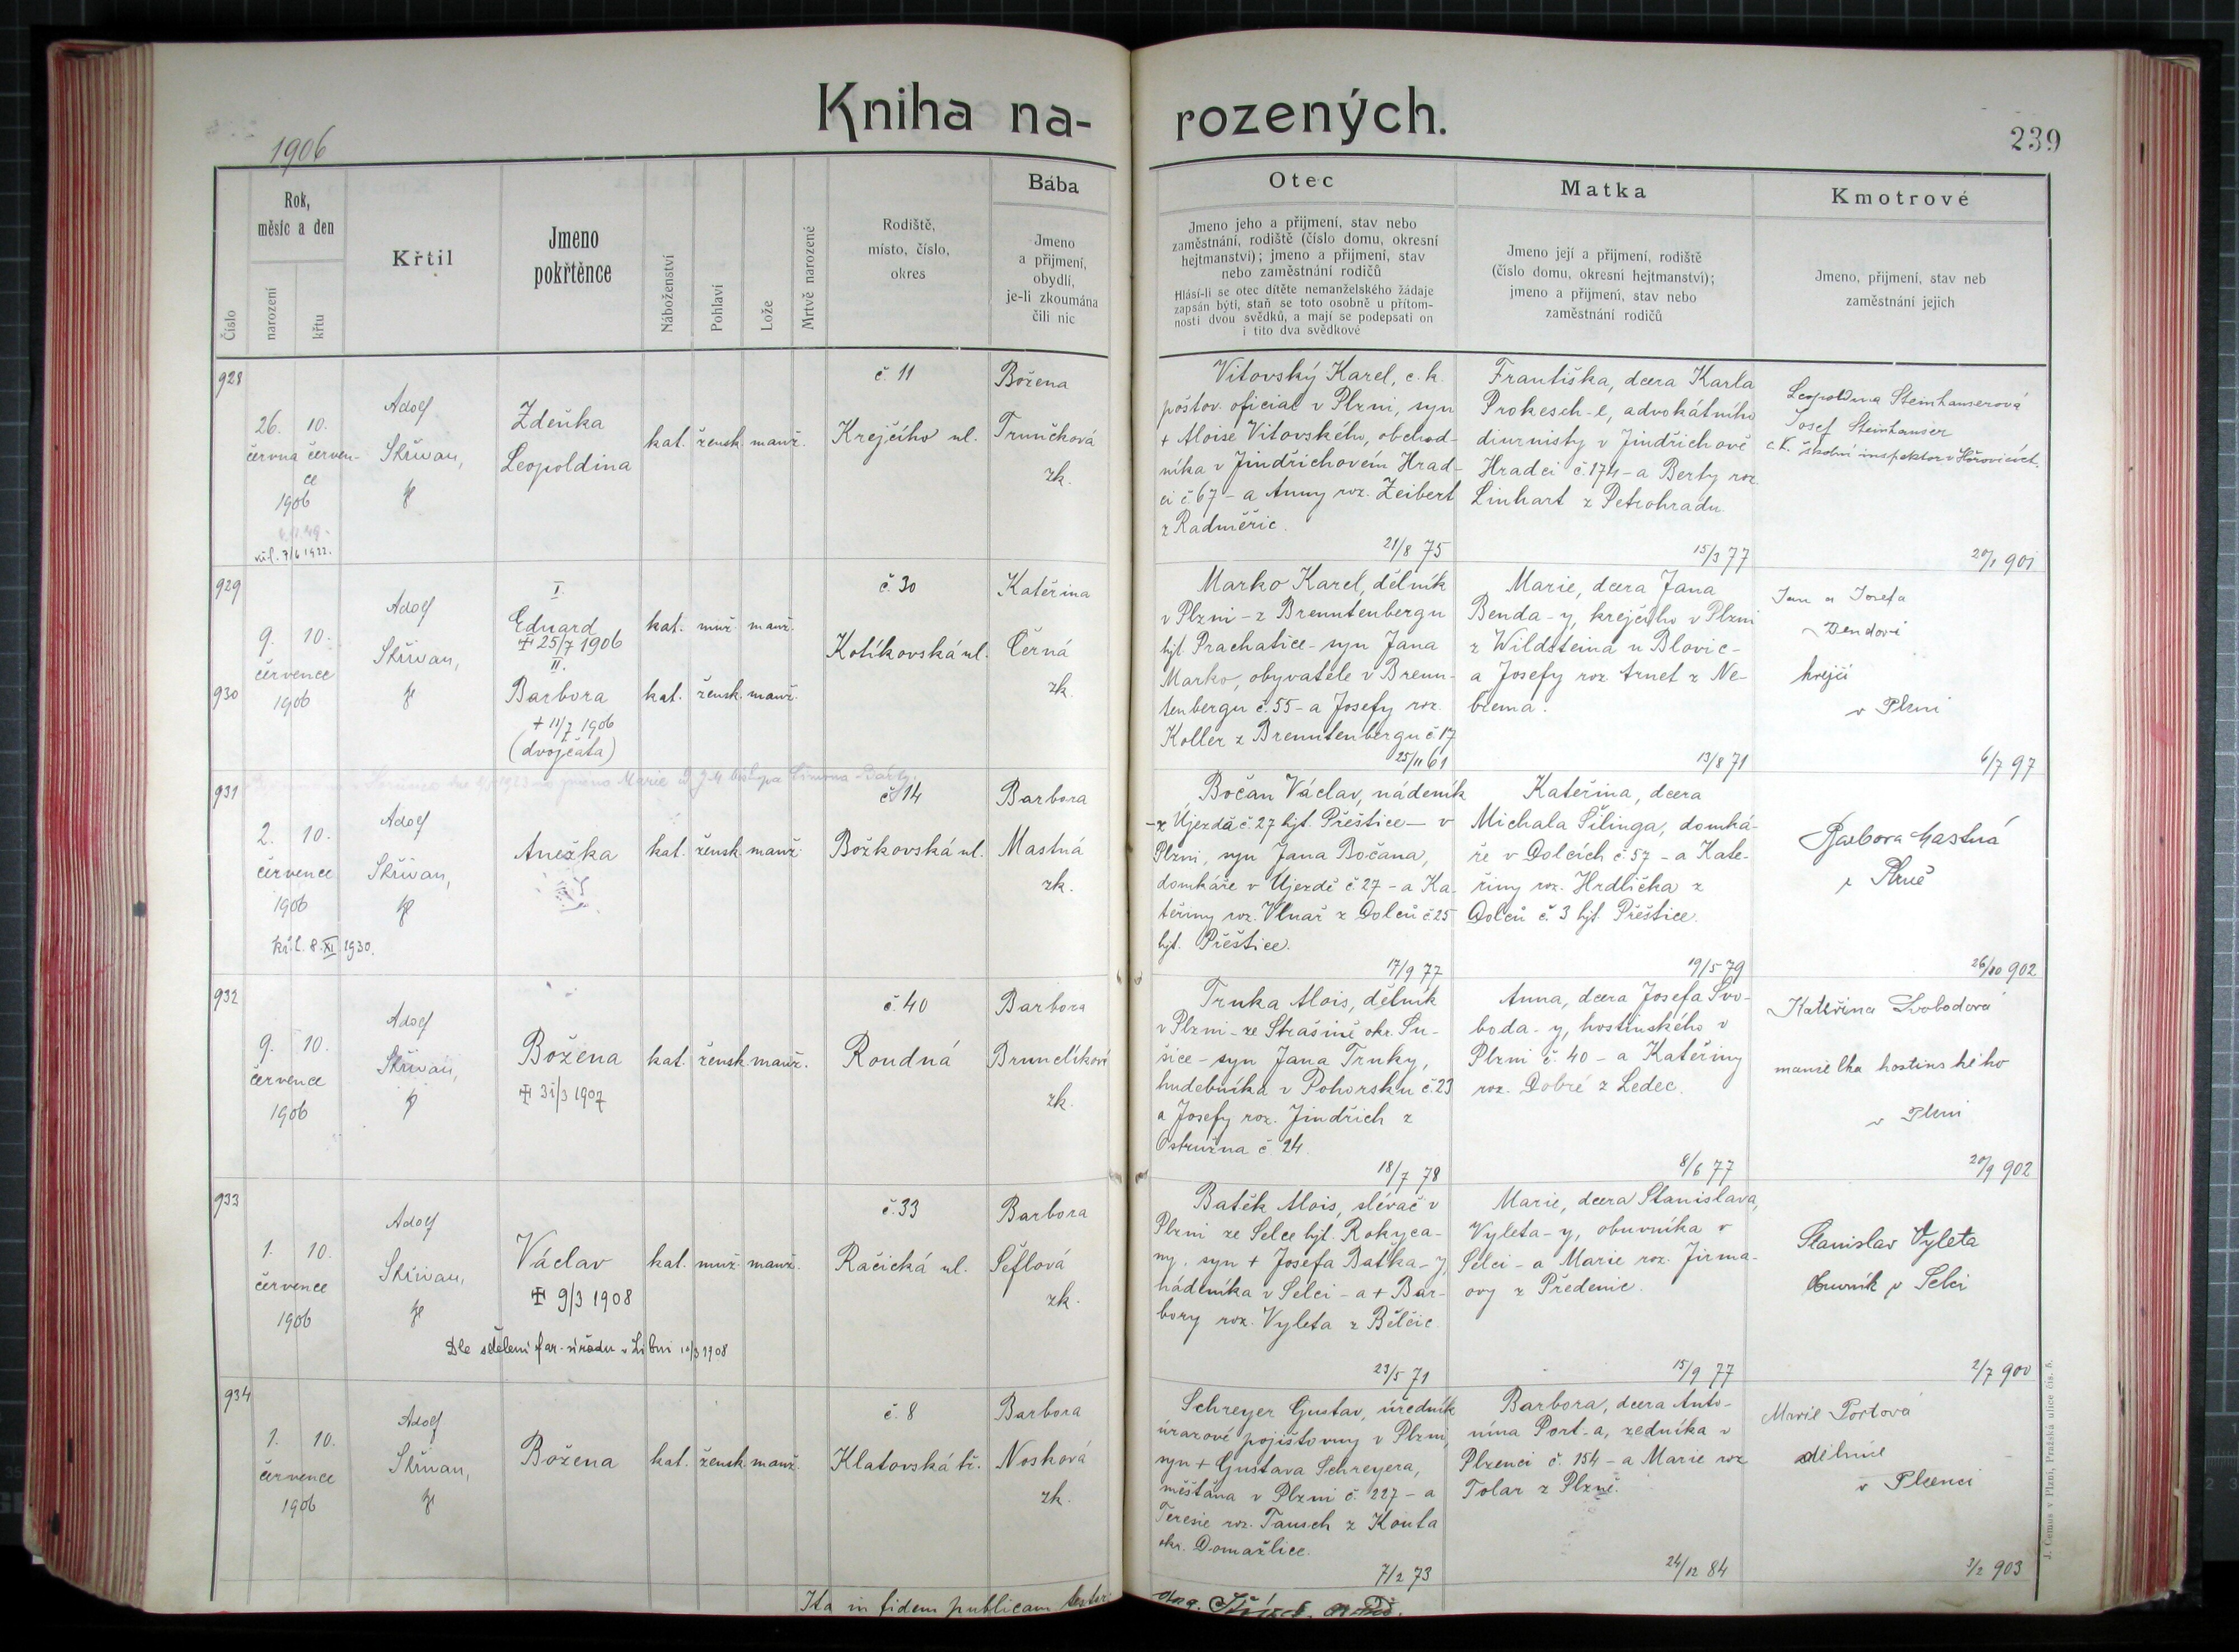 Kniha na-
rozených.
239
1906
Číslo
Rok,
měsíc a den
narození
křtu
Křtil
Jmeno
pokřtěnce
Náboženství
Pohlaví
Lože
Mrtvě narozené
Rodiště,
místo, číslo,
okres
Bába
Jmeno
a přijmení,
obydlí,
je-li zkoumána
čili nic
Otec
Jmeno jeho a přijmení, stav nebo
zaměstnání, rodiště (číslo domu, okresní
hejtmanství); jmeno a přijmení, stav
nebo zaměstnání rodičů
Hlásí-li se otec dítěte nemanželského žádaje
zapsán býti, staň se toto osobně u přítom-
nosti dvou svědků, a mají se podepsati on
i tito dva svědkové
Matka
Jmeno její a přijmení, rodiště
(číslo domu, okresní hejtmanství);
jmeno a přijmení, stav nebo
zaměstnání rodičů
Kmotrové
Jmeno, přijmení, stav neb
zaměstnání jejich
928
26. 10.
června červen-
ce
1906
7/6 1922.
Adolf
Skřivan,
Zdeňka
Leopoldina
kat. žensk. manž.
č. 11
Krejčího ul.
Božena
Trunčková
zk.
Vitovský Karel, c. k.
poštov. oficial v Plzni, syn
+ Aloise Vitovského, obchod-
níka v Jindřichovém Hrad-
ci č 67 - a Anny roz. Zeibert
z Radměřic.
21/8 75
Františka, dcera Karla
Prokesch-e, advokátního
diurnisty v Jindřichově
Hradci č. 174 - a Berty roz.
Linhart z Petrohradu.
15/3 77
Leopoldina Steinhauserová
Josef Steinhauser
c. k. školní inspektor v Hořovicích.
20/1 901
929
930
9. 10.
července
1906
Adolf
Skřivan,
I.
Eduard
25/7 1906
II.
Barbora
+ 11/7 1906
(dvojčata)
kat. muž. manž.
kat. žensk. manž.
č. 30
Kotíkovská ul.
Kateřina
Černá
zk.
Marko Karel, dělník
v Plzni - z Brenntenbergu
hjt. Prachatice - syn Jana
Marko, obyvatele v Brenn-
tenbergu č. 55 - a Josefy roz.
Koller z Brenntenbergu č 17
25/11 61
Marie, dcera Jana
Benda-y, krejčího v Plzni
z Wildsteina u Blovic -
a Josefy roz. Arnet z Ne-
břema.
13/8 71
Jan a Josefa
Bendovi
krejčí
v Plzni
6/7 97
931
2. 10.
července
1906
8. XI 1930.
Adolf
Skřivan,
Anežka
kat. žensk. manž.
č. 14
Božkovská ul.
Barbora
Mastná
zk.
Bočan Václav, nádeník
- z Újezda č. 27 hjt. Přeštice - v
Plzni, syn Jana Bočana,
domkáře v Újezdě č 27 - a Ka-
teřiny roz. Vlnař z Dolců č 25
hjt. Přeštice.
17/9 77
Kateřina, dcera
Michala Šilinga, domká-
ře v Dolcích č. 57 - a Kate-
řiny roz. Hrdlička z
Dolců č 3 hjt. Přeštice.
19/5 79
Barbora Mastná
v Plzně
26/10 902
932
9. 10.
července
1906
Adolf
Skřivan,
Božena
31/3 1907
kat. žensk. manž.
č. 40
Roudná
Barbora
Brunclíková
zk.
Trnka Alois, dělník
v Plzni - ze Strašině okr. Su-
šice - syn Jana Trnky,
hudebníka v Pohorsku č. 23
a Josefy roz. Jindřich z
Ostružna č 24.
18/7 78
Anna, dcera Josefa Svo-
boda-y, hostinského v
Plzni č. 40 - a Kateřiny
roz. Dobré z Ledec.
8/6 77
Kateřina Svobodová
manželka hostinského
v Plzni
20/9 902
933
1. 10.
července
1906
Adolf
Skřivan,
Václav
9/3 1908
Dle sdělení far. úřadu v Libni 10/3 1908
kat. muž. manž.
č. 33
Račická ul.
Barbora
Šeflová
zk.
Batěk Alois, slévač v
Plzni ze Selce hjt. Rokyca-
ny, syn + Josefa Batka-y,
nádeníka v Selci - a + Bar-
bory roz. Vyleta z Bělčic.
23/5 71
Marie, dcera Stanislava,
Vyleta-y, obuvníka v
Selci - a Marie roz. Jirma-
ovy z Předenic.
15/9 77
Stanislav Vyleta
obuvník v Selci
2/7 900
934
1. 10.
července
1906
Adolf
Skřivan,
Božena
kat. žensk. manž.
č. 8
Klatovská tř.
Barbora
Nosková
zk.
Schreyer Gustav, úředník
úrazové pojišťovny v Plzni,
syn + Gustava Schreyera,
měšťana v Plzni č. 227 - a
Teresie roz. Tausch z Kouta
okr. Domažlice.
7/2 73
Barbora, dcera Anto-
nína Port-a, zedníka v
Plzenci č. 154 - a Marie roz.
Tolar z Plzně.
24/12 84
Marie Portová
dělnice
v Plzenci
3/2 903
Ita in fidem publicam testor
J. Cemus v Plzni, Pražská ulice čís. 5.